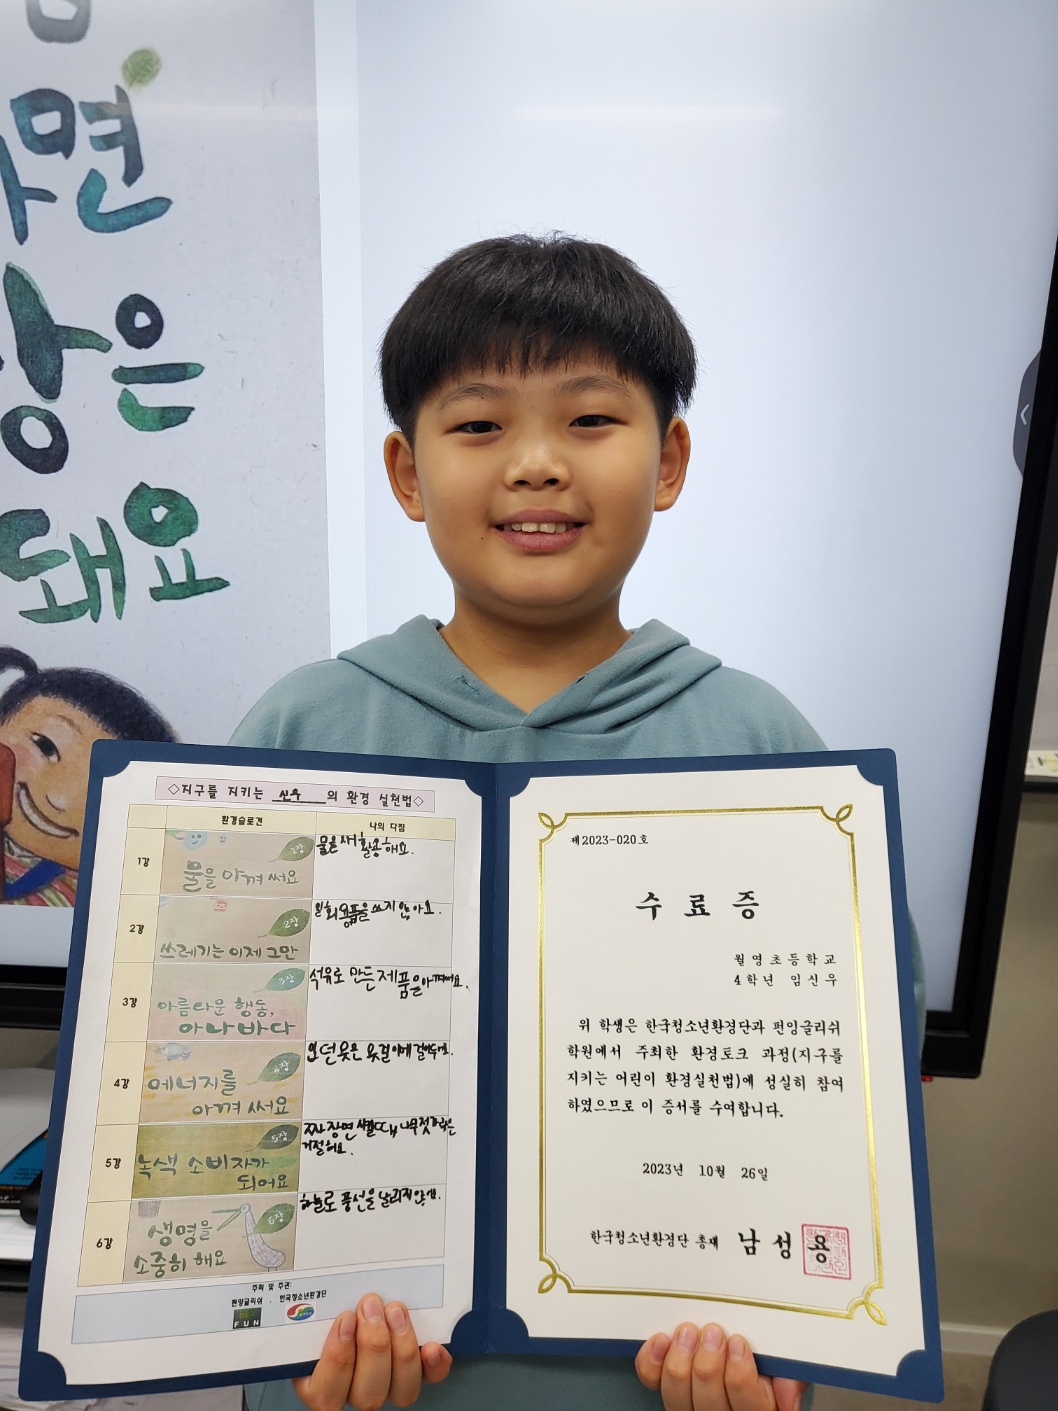 면
은
돼요
◇지구를 지키는 신우 의 환경 실천법◇
환경슬로건
나의 다짐
1강
1장
물을 아껴 써요
물을 재활용해요.
2강
2장
쓰레기는 이제 그만
일회용품을 쓰지 않아요.
3강
3장
아름다운 행동,
아나바다
석유로 만든 제품을 아껴써요.
4강
4장
에너지를
아껴 써요
5강
5장
녹색 소비자가
되어요
짜장면 시킬 때, 나무젓가락은
거절해요.
6강
6장
생명을
소중히 해요
하늘로 풍선을 날리지 않게.
주최 및 주관:
펀잉글리쉬 . 한국청소년환경단
FUN
제2023-020호
수료증
월영초등학교
4학년 임신우
위 학생은 한국청소년환경단과 펀잉글리쉬
학원에서 주최한 환경토크 과정(지구를
지키는 어린이 환경실천법)에 성실히 참여
하였으므로 이 증서를 수여합니다.
2023년 10월 26일
한국청소년환경단 총재 남성용